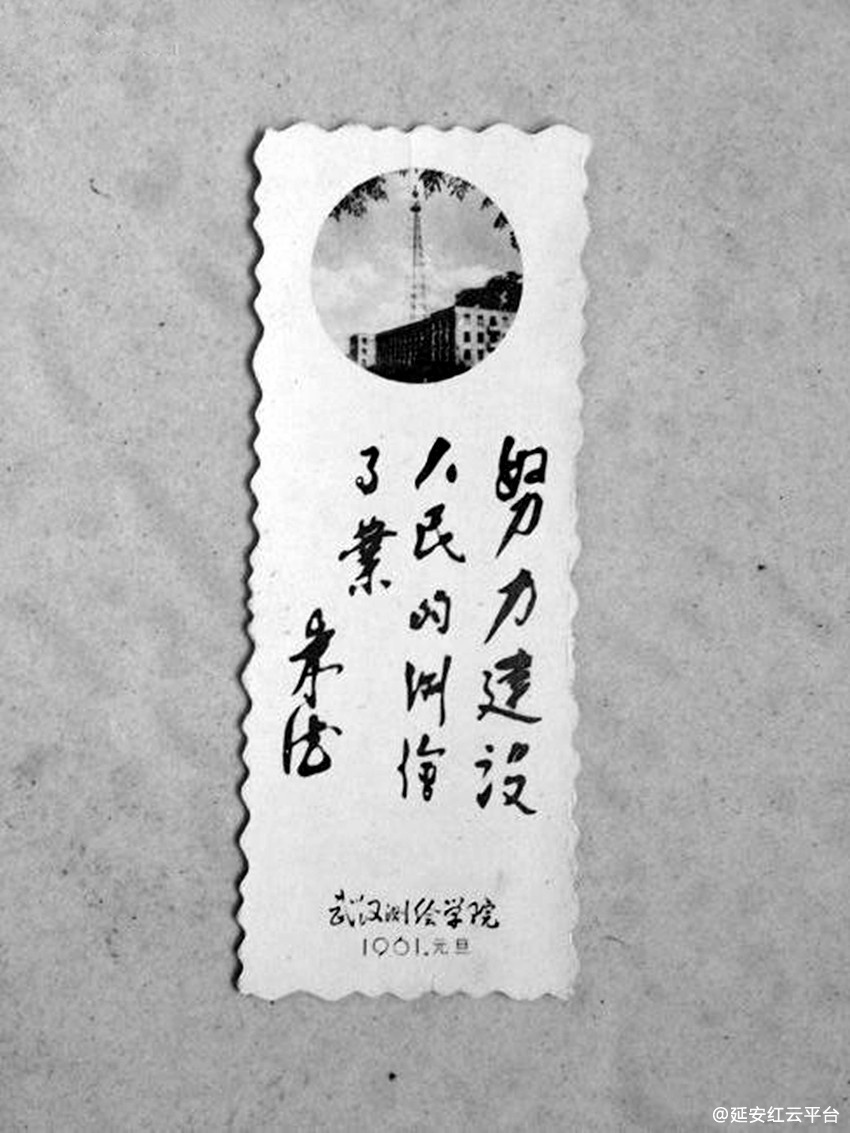 努力建设
人民的测绘
事業
朱德
武汉测绘学院
1961.元旦
@延安红云平台